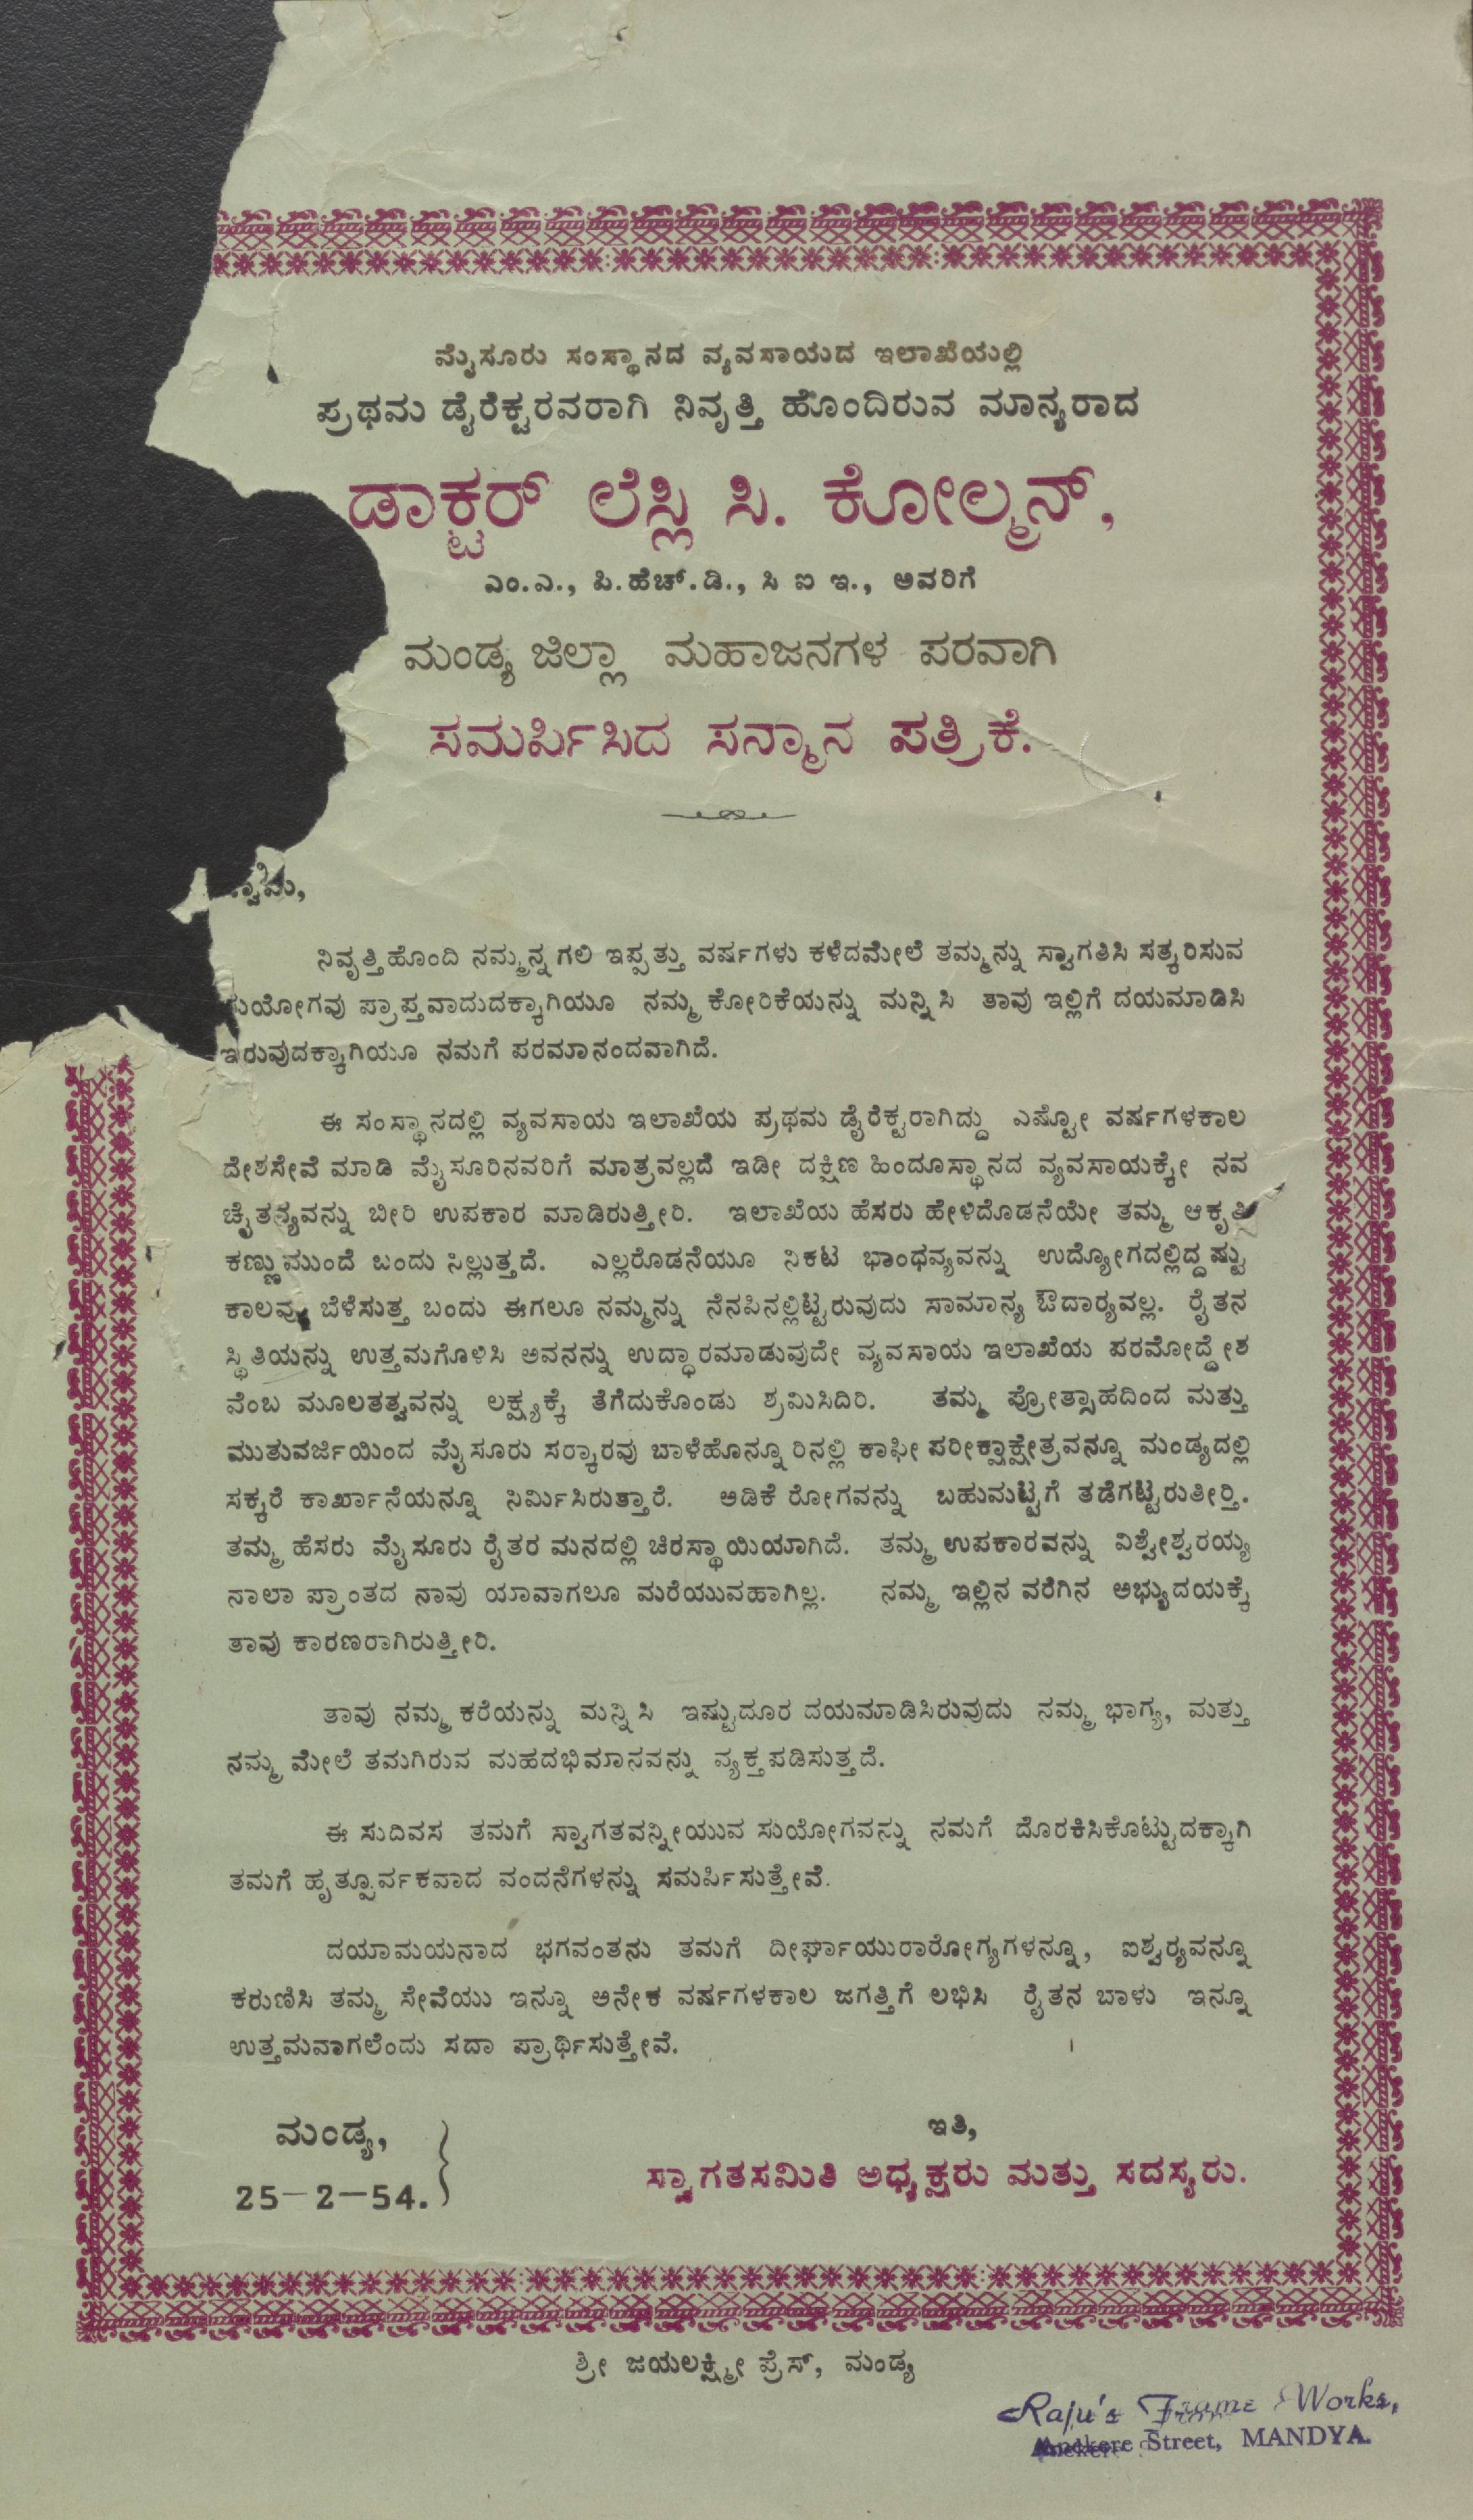 ಮೈಸೂರು ಸಂಸ್ಥಾನದ ವ್ಯವಸಾಯದ ಇಲಾಖೆಯಲ್ಲಿ
ಪ್ರಥಮ ಡೈರೆಕ್ಟರವರಾಗಿ ನಿವೃತ್ತಿ ಹೊಂದಿರುವ ಮಾನ್ಯರಾದ
ಡಾಕ್ಟರ್ ಲೆಸ್ಲಿ ಸಿ. ಕೋಲ್ಮನ್,
ಎಂ.ಎ., ಪಿ.ಹೆಚ್.ಡಿ., ಸಿ ಐ ಇ., ಅವರಿಗೆ
ಮಂಡ್ಯ ಜಿಲ್ಲಾ ಮಹಾಜನಗಳ ಪರವಾಗಿ
ಸಮರ್ಪಿಸಿದ ಸನ್ಮಾನ ಪತ್ರಿಕೆ.
ನಿವೃತ್ತಿಹೊಂದಿ ನಮ್ಮನ್ನಗಲಿ ಇಪ್ಪತ್ತು ವರ್ಷಗಳು ಕಳೆದಮೇಲೆ ತಮ್ಮನ್ನು ಸ್ವಾಗತಿಸಿ ಸತ್ಕರಿಸುವ
ಸುಯೋಗವು ಪ್ರಾಪ್ತವಾದುದಕ್ಕಾಗಿಯೂ ನಮ್ಮ ಕೋರಿಕೆಯನ್ನು ಮನ್ನಿಸಿ ತಾವು ಇಲ್ಲಿಗೆ ದಯಮಾಡಿಸಿ
ಇರುವುದಕ್ಕಾಗಿಯೂ ನಮಗೆ ಪರಮಾನಂದವಾಗಿದೆ.
ಈ ಸಂಸ್ಥಾನದಲ್ಲಿ ವ್ಯವಸಾಯ ಇಲಾಖೆಯ ಪ್ರಥಮ ಡೈರೆಕ್ಟರಾಗಿದ್ದು ಎಷ್ಟೋ ವರ್ಷಗಳಕಾಲ
ದೇಶಸೇವೆ ಮಾಡಿ ಮೈಸೂರಿನವರಿಗೆ ಮಾತ್ರವಲ್ಲದೆ ಇಡೀ ದಕ್ಷಿಣ ಹಿಂದೂಸ್ಥಾನದ ವ್ಯವಸಾಯಕ್ಕೇ ನವ
ಚೈತನ್ಯವನ್ನು ಬೀರಿ ಉಪಕಾರ ಮಾಡಿರುತ್ತೀರಿ. ಇಲಾಖೆಯ ಹೆಸರು ಹೇಳಿದೊಡನೆಯೇ ತಮ್ಮ ಆಕೃತಿ
ಕಣ್ಣುಮುಂದೆ ಬಂದು ನಿಲ್ಲುತ್ತದೆ. ಎಲ್ಲರೊಡನೆಯೂ ನಿಕಟ ಭಾಂಧವ್ಯವನ್ನು ಉದ್ಯೋಗದಲ್ಲಿದ್ದಷ್ಟು
ಕಾಲವೂ ಬೆಳೆಸುತ್ತ ಬಂದು ಈಗಲೂ ನಮ್ಮನ್ನು ನೆನಪಿನಲ್ಲಿಟ್ಟಿರುವುದು ಸಾಮಾನ್ಯ ಔದಾರ‍್ಯವಲ್ಲ. ರೈತನ
ಸ್ಥಿತಿಯನ್ನು ಉತ್ತಮಗೊಳಿಸಿ ಅವನನ್ನು ಉದ್ಧಾರಮಾಡುವುದೇ ವ್ಯವಸಾಯ ಇಲಾಖೆಯ ಪರಮೋದ್ದೇಶ
ವೆಂಬ ಮೂಲತತ್ವವನ್ನು ಲಕ್ಷ್ಯಕ್ಕೆ ತೆಗೆದುಕೊಂಡು ಶ್ರಮಿಸಿದಿರಿ. ತಮ್ಮ ಪ್ರೋತ್ಸಾಹದಿಂದ ಮತ್ತು
ಮುತುವರ್ಜಿಯಿಂದ ಮೈಸೂರು ಸರ‍್ಕಾರವು ಬಾಳೆಹೊನ್ನೂರಿನಲ್ಲಿ ಕಾಫೀ ಪರೀಕ್ಷಾಕ್ಷೇತ್ರವನ್ನೂ ಮಂಡ್ಯದಲ್ಲಿ
ಸಕ್ಕರೆ ಕಾರ್ಖಾನೆಯನ್ನೂ ನಿರ್ಮಿಸಿರುತ್ತಾರೆ. ಅಡಿಕೆ ರೋಗವನ್ನು ಬಹುಮಟ್ಟಿಗೆ ತಡೆಗಟ್ಟಿರುತೀರ‍್ತಿ.
ತಮ್ಮ ಹೆಸರು ಮೈಸೂರು ರೈತರ ಮನದಲ್ಲಿ ಚಿರಸ್ಥಾಯಿಯಾಗಿದೆ. ತಮ್ಮ ಉಪಕಾರವನ್ನು ವಿಶ್ವೇಶ್ವರಯ್ಯ
ನಾಲಾ ಪ್ರಾಂತದ ನಾವು ಯಾವಾಗಲೂ ಮರೆಯುವಹಾಗಿಲ್ಲ. ನಮ್ಮ ಇಲ್ಲಿನ ವರೆಗಿನ ಅಭ್ಯುದಯಕ್ಕೆ
ತಾವು ಕಾರಣರಾಗಿರುತ್ತೀರಿ.
ತಾವು ನಮ್ಮ ಕರೆಯನ್ನು ಮನ್ನಿಸಿ ಇಷ್ಟುದೂರ ದಯಮಾಡಿಸಿರುವುದು ನಮ್ಮ ಭಾಗ್ಯ, ಮತ್ತು
ನಮ್ಮ ಮೇಲೆ ತಮಗಿರುವ ಮಹದಭಿಮಾನವನ್ನು ವ್ಯಕ್ತಪಡಿಸುತ್ತದೆ.
ಈ ಸುದಿವಸ ತಮಗೆ ಸ್ವಾಗತವನ್ನೀಯುವ ಸುಯೋಗವನ್ನು ನಮಗೆ ದೊರಕಿಸಿಕೊಟ್ಟುದಕ್ಕಾಗಿ
ತಮಗೆ ಹೃತ್ಪೂರ್ವಕವಾದ ವಂದನೆಗಳನ್ನು ಸಮರ್ಪಿಸುತ್ತೇವೆ.
ದಯಾಮಯನಾದ ಭಗವಂತನು ತಮಗೆ ದೀರ್ಘಾಯುರಾರೋಗ್ಯಗಳನ್ನೂ, ಐಶ್ವರ‍್ಯವನ್ನೂ
ಕರುಣಿಸಿ ತಮ್ಮ ಸೇವೆಯು ಇನ್ನೂ ಅನೇಕ ವರ್ಷಗಳಕಾಲ ಜಗತ್ತಿಗೆ ಲಭಿಸಿ ರೈತನ ಬಾಳು ಇನ್ನೂ
ಉತ್ತಮವಾಗಲೆಂದು ಸದಾ ಪ್ರಾರ್ಥಿಸುತ್ತೇವೆ.
ಮಂಡ್ಯ,
25-2-54.
ಇತಿ,
ಸ್ವಾಗತಸಮಿತಿ ಅಧ್ಯಕ್ಷರು ಮತ್ತು ಸದಸ್ಯರು.
ಶ್ರೀ ಜಯಲಕ್ಷ್ಮೀ ಪ್ರೆಸ್, ಮಂಡ್ಯ
Raju's Frame Works,
Anekere Street, MANDYA.